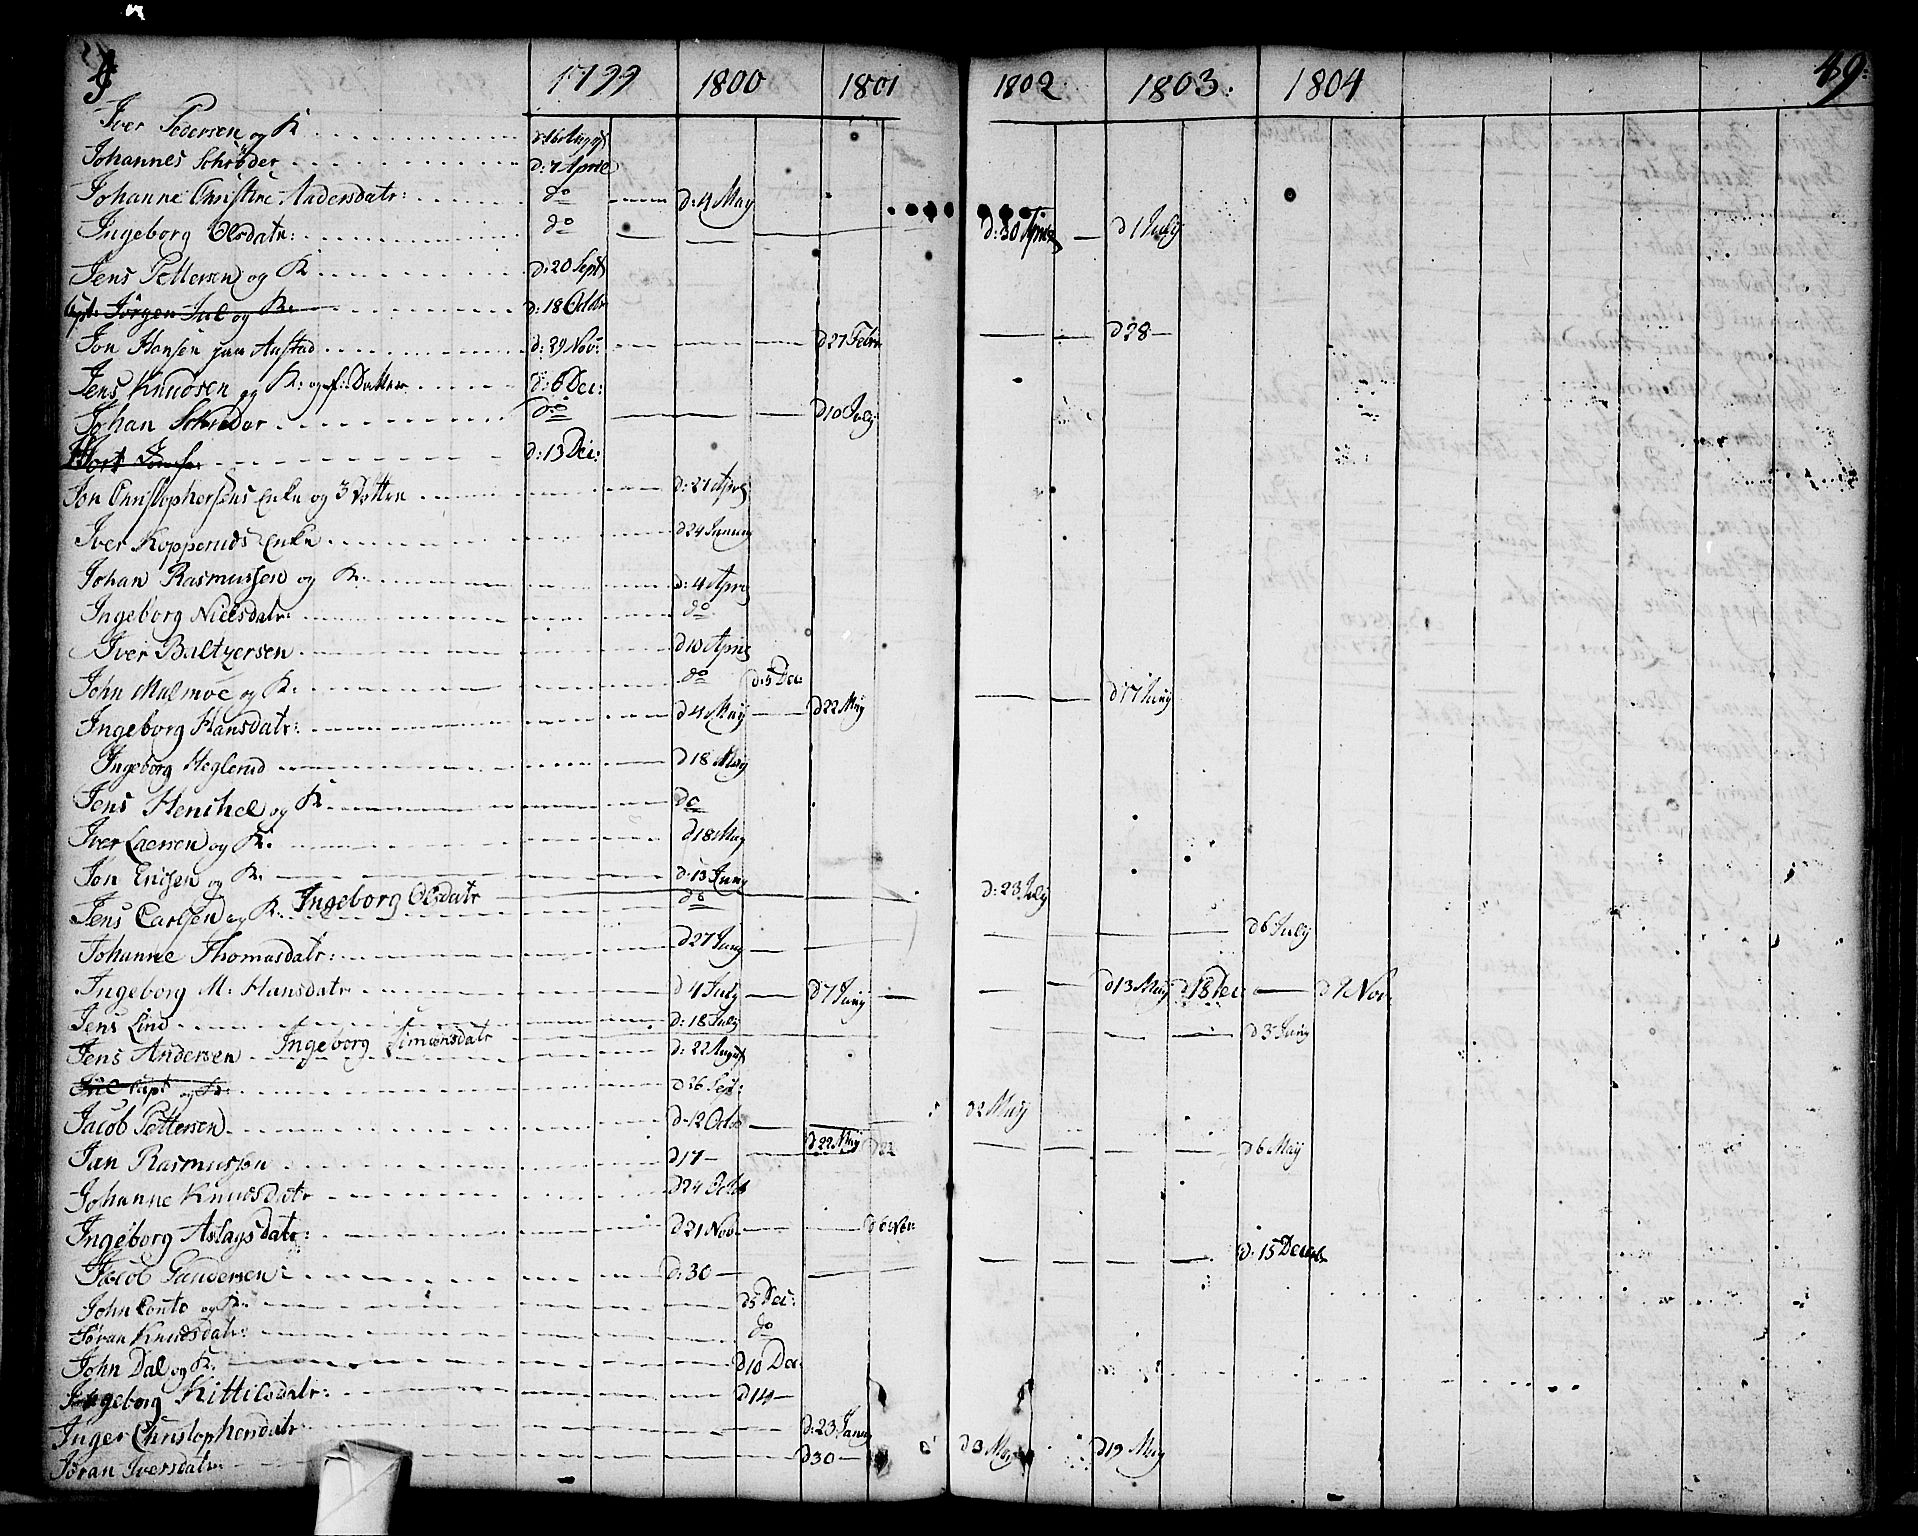 J 1799 1800 1801 1802 1803. 1804 49.
Iver Pedersen og K d: 16 Augst
Johannes Schrøder d: 7 April
Johanne Christine Andersdatr: do d: 4 May
Ingeborg Olsdatr: do d: 30 April d 1 July
Jens Pettersen og K d: 20 Sept
Cpt: Jörgen Jul og K. d: 18 Octbr
Jon Hansen paa Austad d: 29 Nov: d 27 Febr d 28
Jens Knudsen og K: og f: Datter d: 6 Dec:
Johan Schrøder do d 10 July
d: 13 Dec:
Jon Christophersens Enke og 3 Døttre d: 27 April
Iver Kopperuds Enke d 24 January
Johan Rasmussen og K. d: 4 April
Ingeborg Nielsdatr: do
Iver Baltzersen d 10 April
John Malmoe og K. do d: 5 Dec: d 17 Juny
Ingeborg Hansdatr: d 4 May d 22 May
Ingeborg Heglerud d 18 May
Jens Henchel og K do
Iver Laersen og K. d 18 May
Jon Ericsen og K. d: 13 Juny
Ingeborg Olsdatr d: 23 July
Jens Carlsen og K. do
Johanne Thomasdatr: d 27 Juny d 6 July
Ingeborg M: Hansdatr d 4 July d 7 Juny d 13 May d 18 Dec d 9 Nov.
Jens Lind d: 18 July
Ingeborg Simensdatr d 3 Juny
Jens Andersen d: 22 August
Jul Capt og K: d 26 Sept:
Jacob Pettersen d: 12 Octbr d 2 May
Jan Rasmussen d 17 d 22 May d 22 d 6 May
Johanne Knudsdatr d 24 Octb
Ingeborg Aslagsdatr: d 21 Nov. d 6 Nov
Jacob Gundersen: d: 30 d: 15 Decemb
John Conto og K. d 5 Dec:
Jøran Knudsdatr: do
John Dal og K. d 10 Dec
Ingeborg Kittilsdatr: d 14
Inger Christophersdatr d: 23 January
Jøran Iversdatr: d 30 d 3 May d 19 May